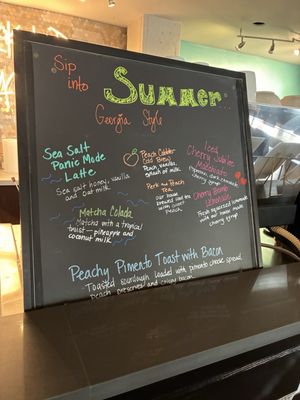 Sip
into
SUMMER..
Georgia Style
Sea Salt
Panic Mode
Latte
Sea salt honey, vanilla
and oat milk
Matcha Colada
Matcha with a tropical
twist—pineapple and
coconut milk
Peach Cobbler
Cold Brew
Peach, vanilla,
splash of milk
Perk and Peach
Our house
brewed iced tea
with
Peach
Iced
Cherry Jubilee
Macchiato
espresso, dark
cherry syrup
Cherry Bomb
Lemonade
Fresh squeezed lemonade
with our house made
cherry syrup
Peachy Pimento Toast with Bacon
Toasted sourdough loaded with pimento cheese spread
peach preserves and crispy bacon